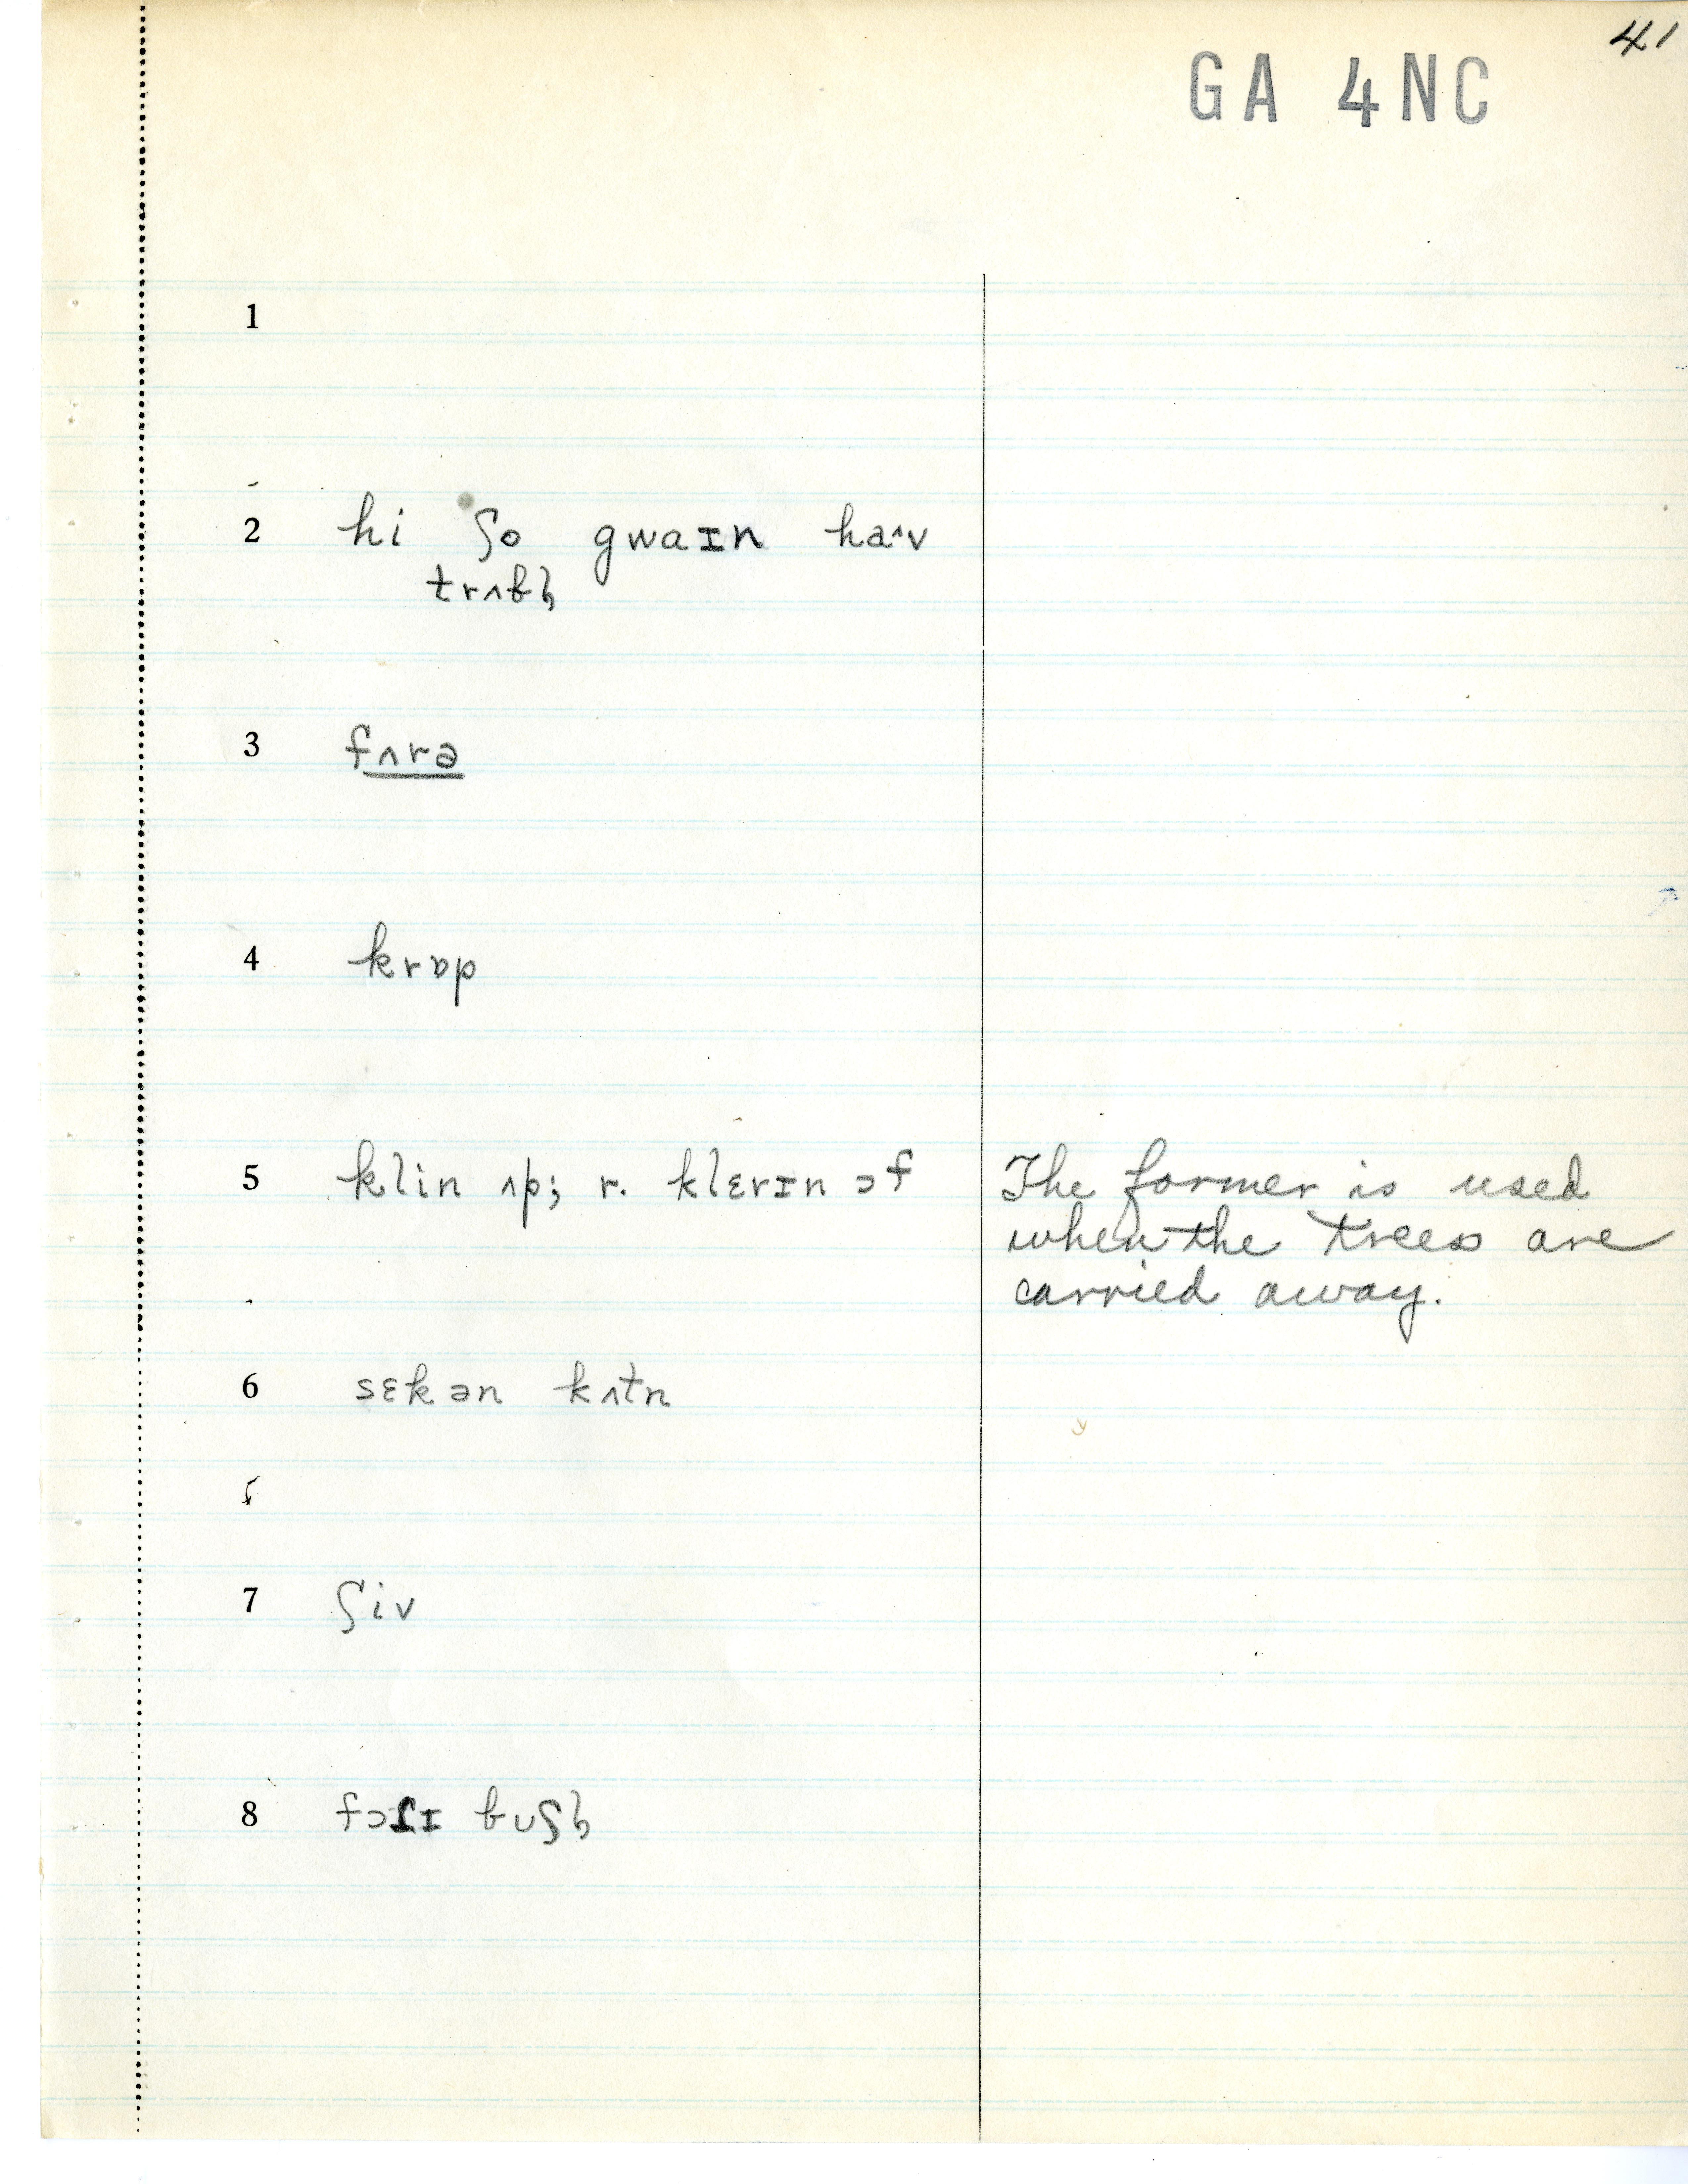 41
GA 4NC
1
2 hi ʃo gwaɪn haˆv
trʌbl̩
3 fʌrə
4 krɒp
5 klin ʌp; r. klɛrɪn ɔf
The former is used
when the trees are
carried away.
6 sɛkən kʌtn
7 ʃiv
8 fɔʃɪ buʃl̩